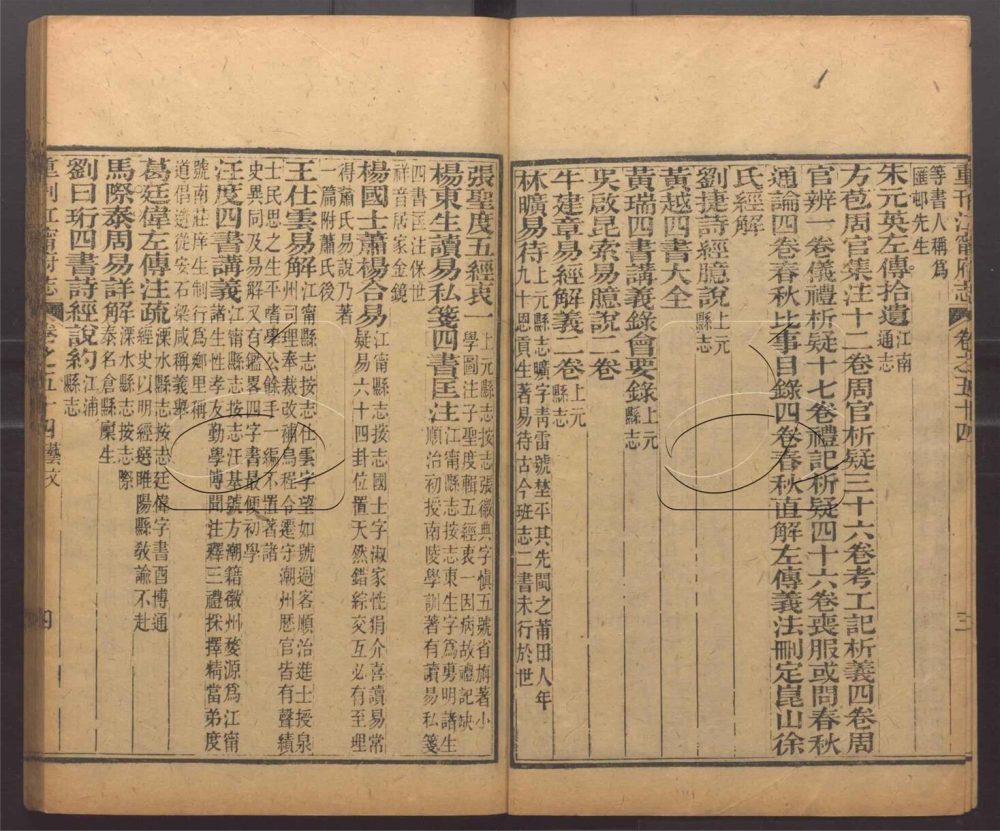 重刊江甯府志 卷之五十四 三
等書人稱爲
匯邨先生
朱元英左傳拾遺江南
通志
方苞周官集注十二卷周官析疑三十六卷考工記析義四卷周
官辨一卷儀禮析疑十七卷禮記析疑四十六卷喪服或問春秋
通論四卷春秋比事目錄四卷春秋直解左傳義法刪定崑山徐
氏經解
劉捷詩經臆說上元
縣志
黃越四書大全
黃瑞四書講義錄會要錄上元
縣志
吳啟昆索易臆說二卷
牛建章易經解義二卷上元
縣志
林曠易待上元縣志曠字靑雷號埜平其先閩之莆田人年
九十恩貢生著易待古今班志二書未行於世
張聖度五經衷一上元縣志按志張徽典字愼五號省旃著小
學圖注子聖度輯五經衷一因病故禮記缺
楊東生讀易私箋四書匡注江甯縣志按志東生字爲勇明諸生
順治初授南陵學訓著有讀易私箋
四書匡注保世
祥音居家金鏡
楊國士蕭楊合易江甯縣志按志國士字淑家性狷介喜讀易常
疑易六十四卦位置天然錯綜交互必有至理
得蕭氏易說乃著
一篇附蕭氏後
王仕雲易解江甯縣志按志仕雲字望如號過客順治進士授泉
州司理奉裁改補烏程令遷守潮州歷官皆有聲績
士民思之生平嗜學公餘手一編不置著諸
史異同及易解又有鑑畧四字書最便初學
汪度四書講義江甯縣志按志汪基號方潮籍徽州婺源爲江甯
諸生性孝友勤學博聞注釋三禮採擇精當弟度
號南莊庠生制行爲鄉里稱
道倡遺從安石梁咸稱義舉
葛廷偉左傳注疏溧水縣志按志廷偉字書酉博通
經史以明經窮睢陽縣敎諭不赴
馬際泰周易詳解溧水縣志按志際
泰名倉縣廩生
劉曰珩四書詩經說約江浦
縣志
重刊江甯府志 卷之五十四藝文 四